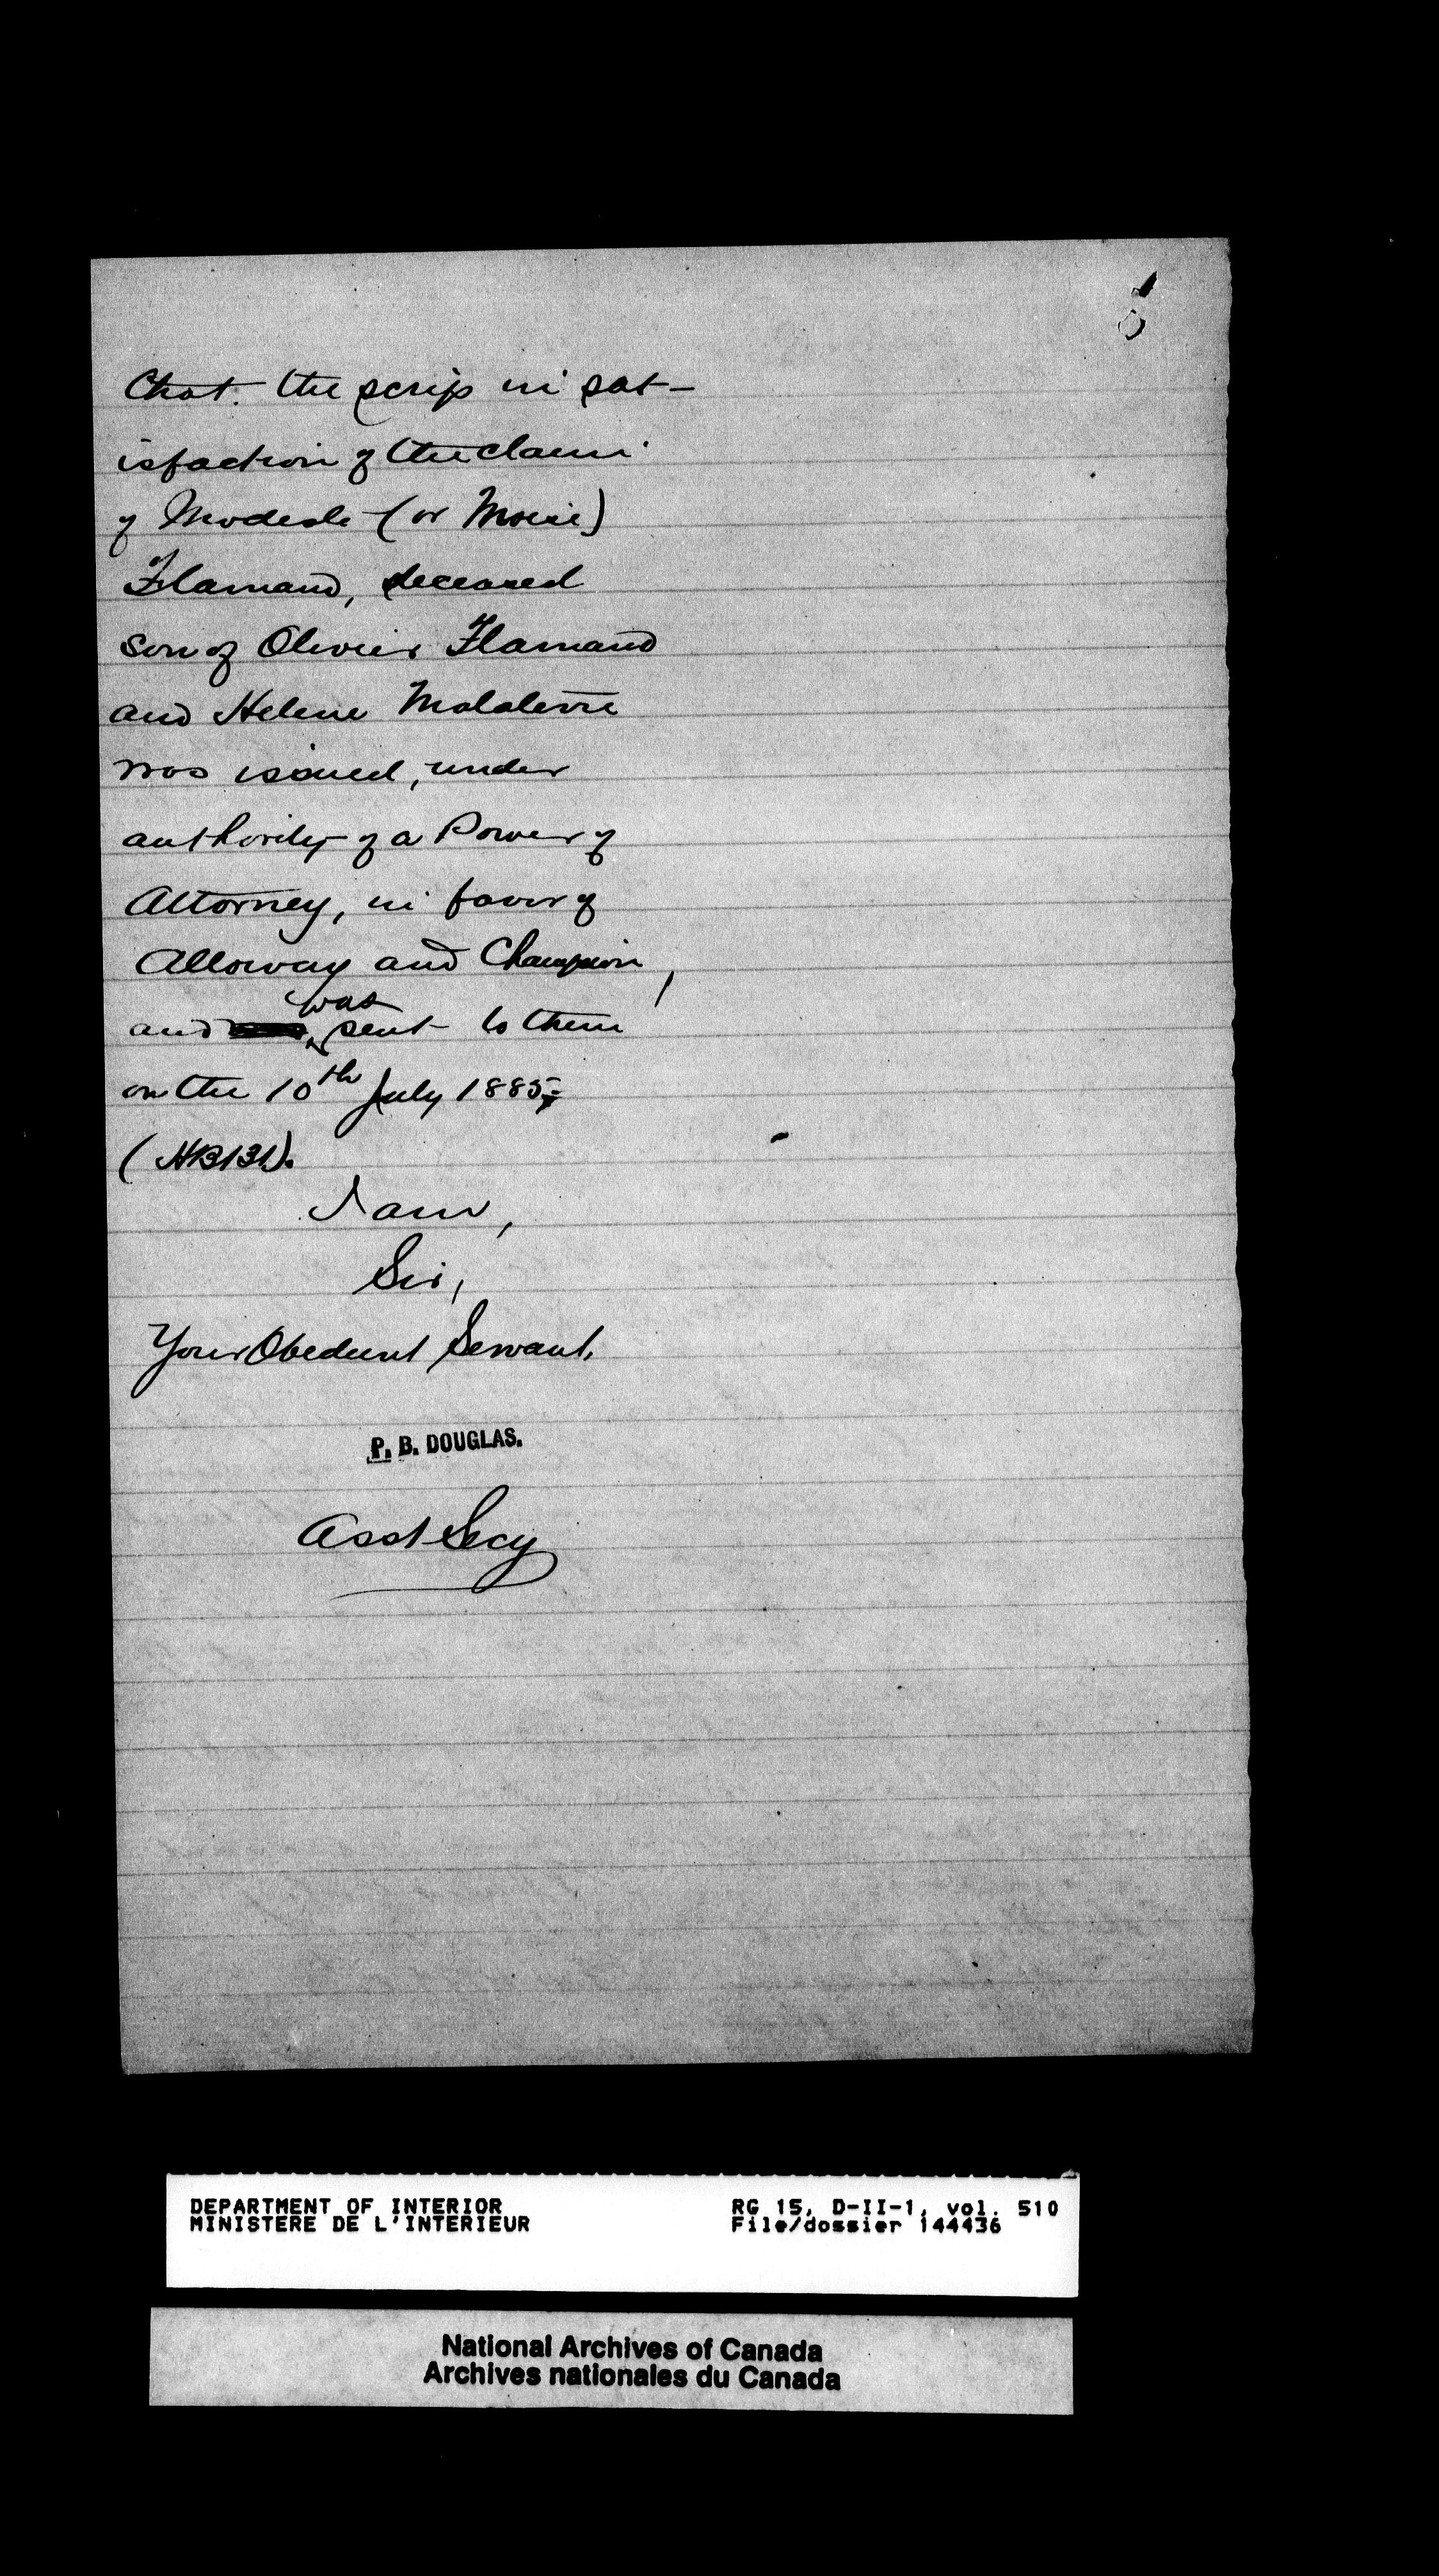 that the scrip in sat-
isfaction of the claim
of Modeste (or Moise)
Flamand, deceased
son of Olivier Flamand
and Helene Malaterre
was issued, under
authority of a Power of
Attorney, in favor of
Alloway and Champion,
and was sent to them
on the 10th July 1885,
(HB131).
I am,
Sir,
Your Obedient Servant,
P. B. DOUGLAS.
Asst Secy
DEPARTMENT OF INTERIOR
MINISTERE DE L'INTERIEUR
RG 15, D-II-1, vol. 510
File/dossier 144436
National Archives of Canada
Archives nationales du Canada